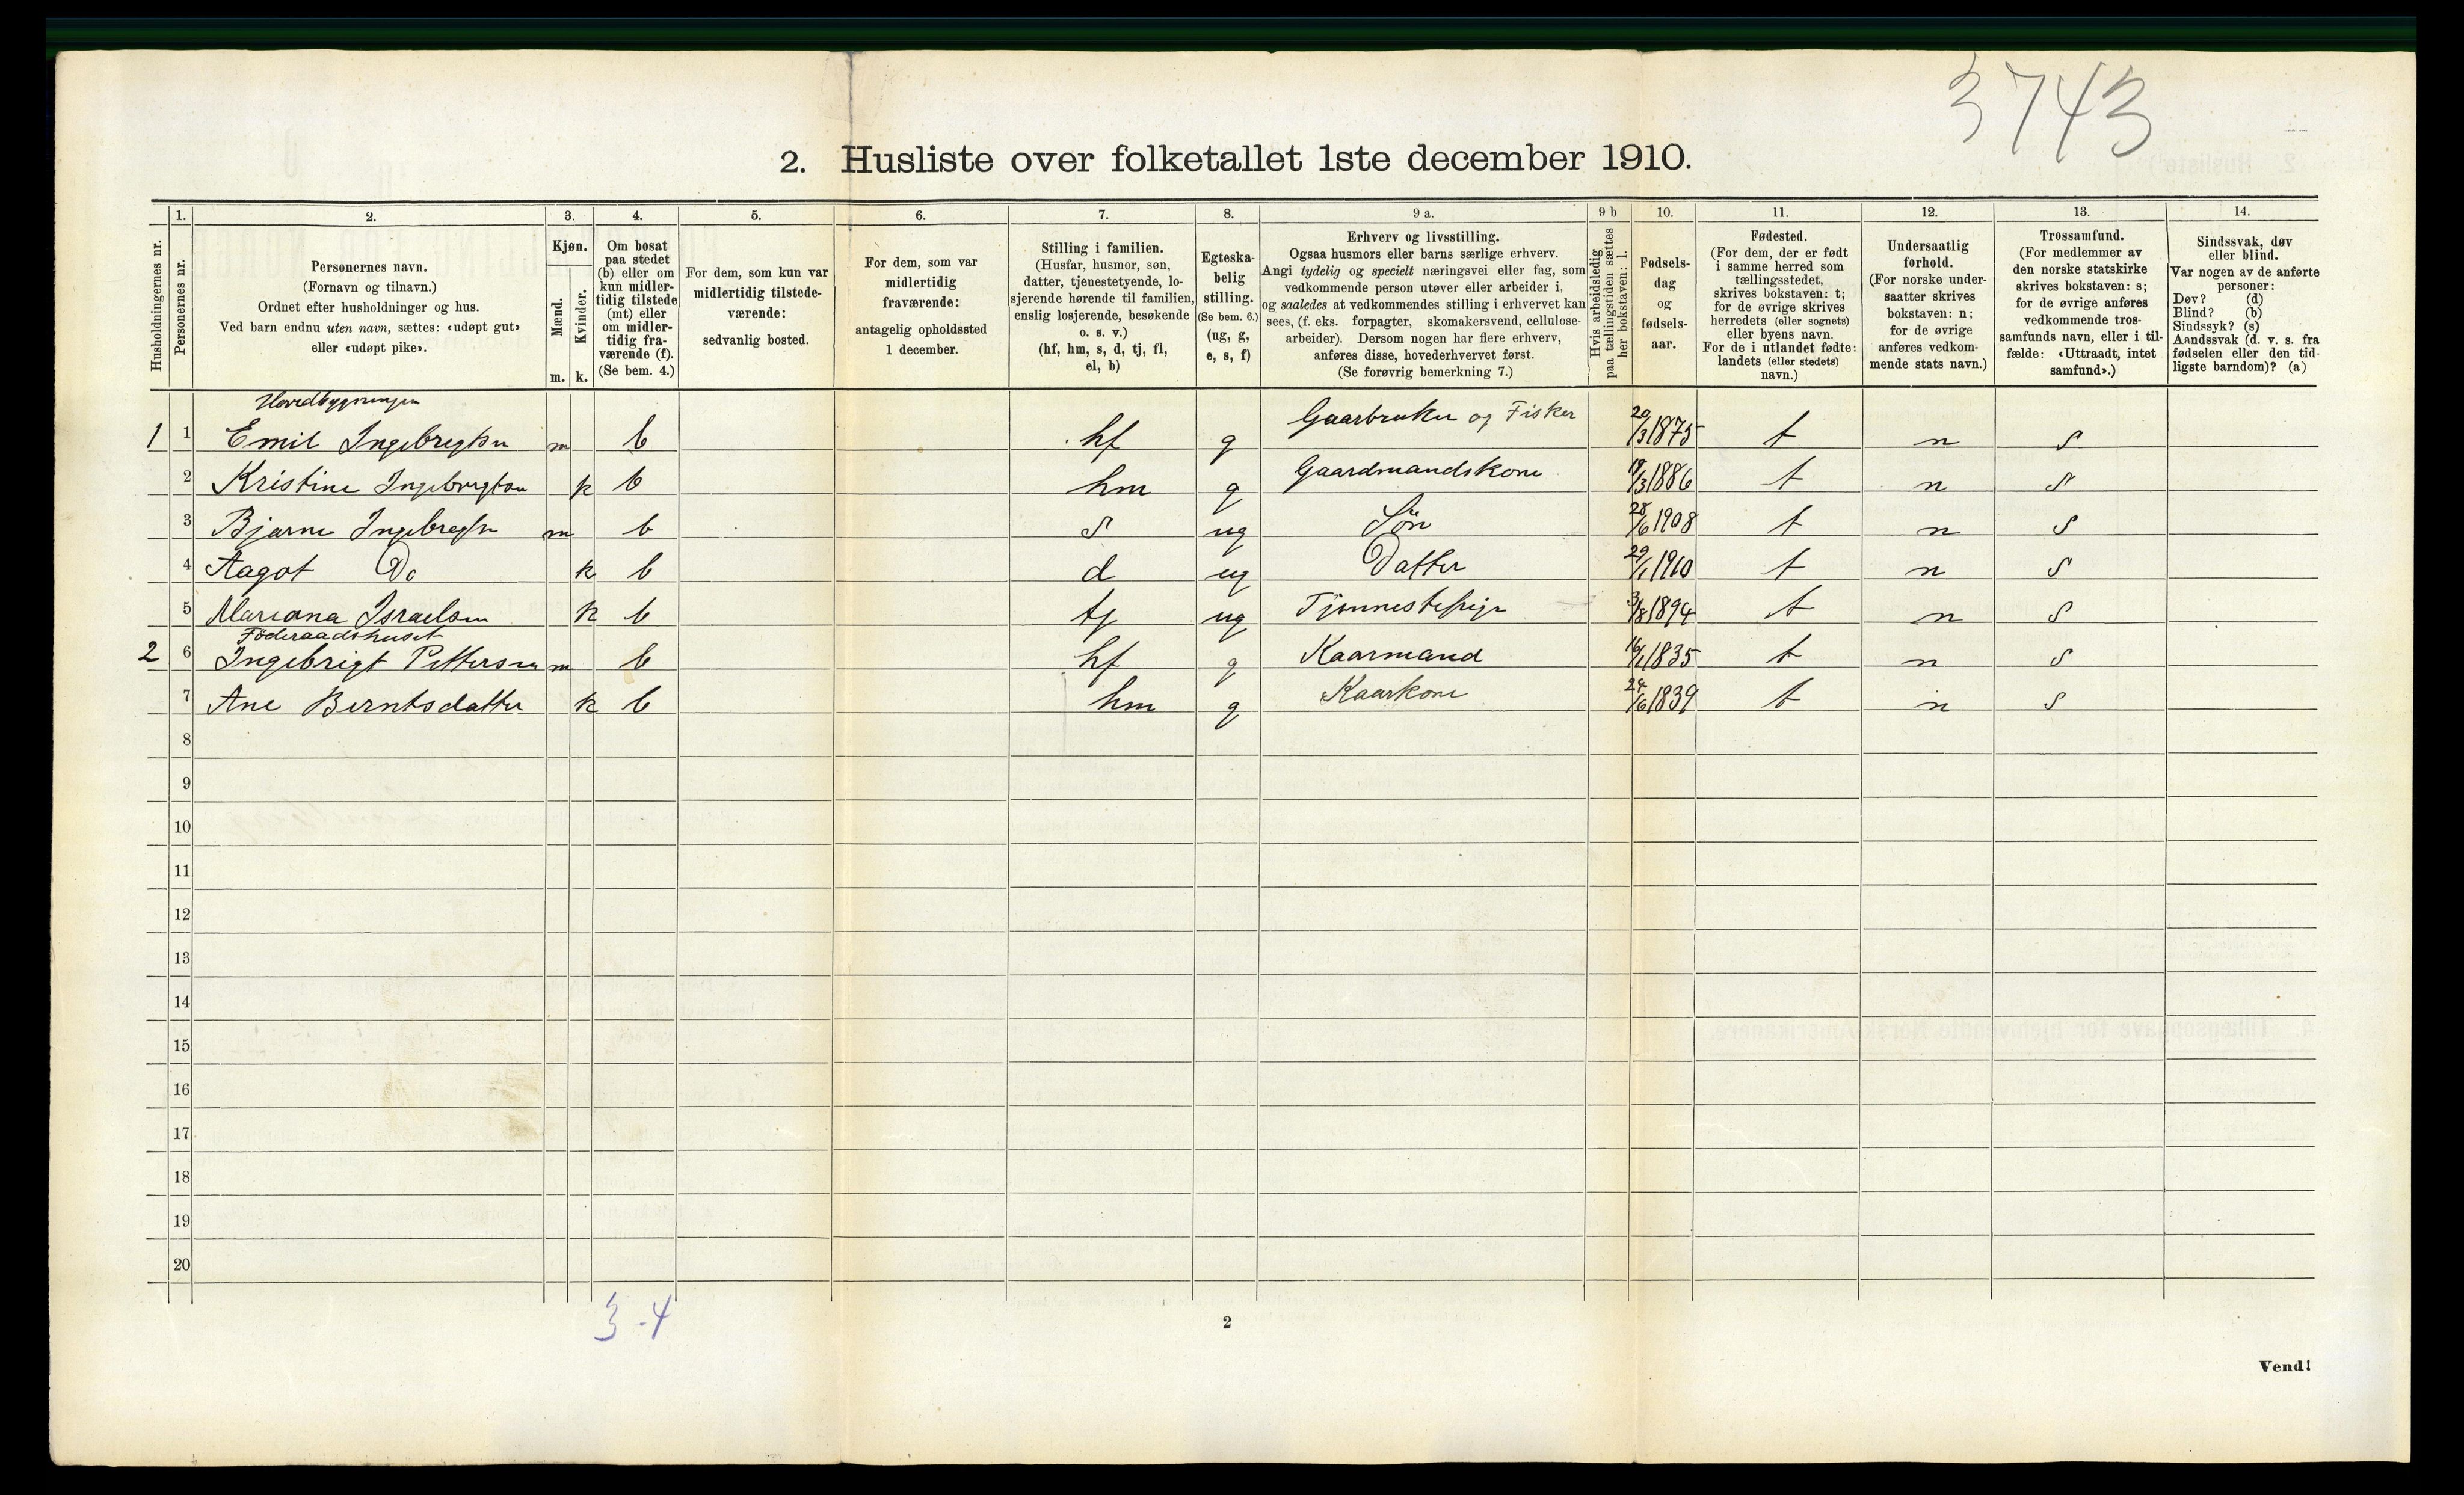 3743
2. Husliste over folketallet 1ste december 1910.
Husholdningernes nr.
1.
Personernes nr.
2.
Personernes navn.
(Fornavn og tilnavn.)
Ordnet efter husholdninger og hus.
Ved barn endnu uten navn, sættes: «udøpt gut»
eller «udøpt pike».
3.
Kjøn.
Mænd.
Kvinder.
m. k.
4.
Om bosat
paa stedet
(b) eller om
kun midler-
tidig tilstede
(mt) eller
om midler-
tidig fra-
værende (f).
(Se bem. 4.)
5.
For dem, som kun var
midlertidig tilstede-
værende:
sedvanlig bosted.
6.
For dem, som var
midlertidig
fraværende:
antagelig opholdssted
1 december.
7.
Stilling i familien.
(Husfar, husmor, søn,
datter, tjenestetyende, lo-
sjerende hørende til familien,
enslig losjerende, besøkende
o. s. v.)
(hf, hm, s, d, tj, fl,
el, b)
8.
Egteska-
belig
stilling.
(Se bem. 6.)
(ug, g,
e, s, f)
9 a.
Erhverv og livsstilling.
Ogsaa husmors eller barns særlige erhverv.
Angi tydelig og specielt næringsvei eller fag, som
vedkommende person utøver eller arbeider i,
og saaledes at vedkommendes stilling i erhvervet kan
sees, (f. eks. forpagter, skomakersvend, cellulose-
arbeider). Dersom nogen har flere erhverv,
anføres disse, hovederhvervet først.
(Se forøvrig bemerkning 7.)
9 b
Hvis arbeidsledig
paa tællingstiden sættes
her bokstaven: l.
10.
Fødsels-
dag
og
fødsels-
aar.
11.
Fødested.
(For dem, der er født
i samme herred som
tællingsstedet,
skrives bokstaven: t;
for de øvrige skrives
herredets (eller sognets)
eller byens navn.
For de i utlandet fødte:
landets (eller stedets)
navn.)
12.
Undersaatlig
forhold.
(For norske under-
saatter skrives
bokstaven: n;
for de øvrige
anføres vedkom-
mende stats navn.)
13.
Trossamfund.
(For medlemmer av
den norske statskirke
skrives bokstaven: s;
for de øvrige anføres
vedkommende tros-
samfunds navn, eller i til-
fælde: «Uttraadt, intet
samfund».)
14.
Sindssvak, døv
eller blind.
Var nogen av de anførte
personer:
Døv? (d)
Blind? (b)
Sindssyk? (s)
Aandssvak (d. v. s. fra
fødselen eller den tid-
ligste barndom)? (a)
Hovedbygningen
1 1 Emil Ingebrigtsn m b hf g Gaarbruker og Fisker 20/3 1875 t n s
2 Kristine Ingebrigtsn k b hm g Gaardmandskone 19/3 1886 t n s
3 Bjarne Ingebregtsn m b s ug Sön 28/6 1908 t n s
4 Aagot Do k b d ug Datter 29/1 1910 t n s
5 Mariana Israelsen k b tj ug 3/8 1894 t n s
Föderaadshuset
2 6 Ingebrigt Pettersen m b hf g Kaarmand 16/1 1835 t n s
7 Ane Berntsdatter k b hm g Kaarkone 24/6 1839 t n s
8
9
10
11
12
13
14
15
16
17
18
19
20
3-4
2
Vend!